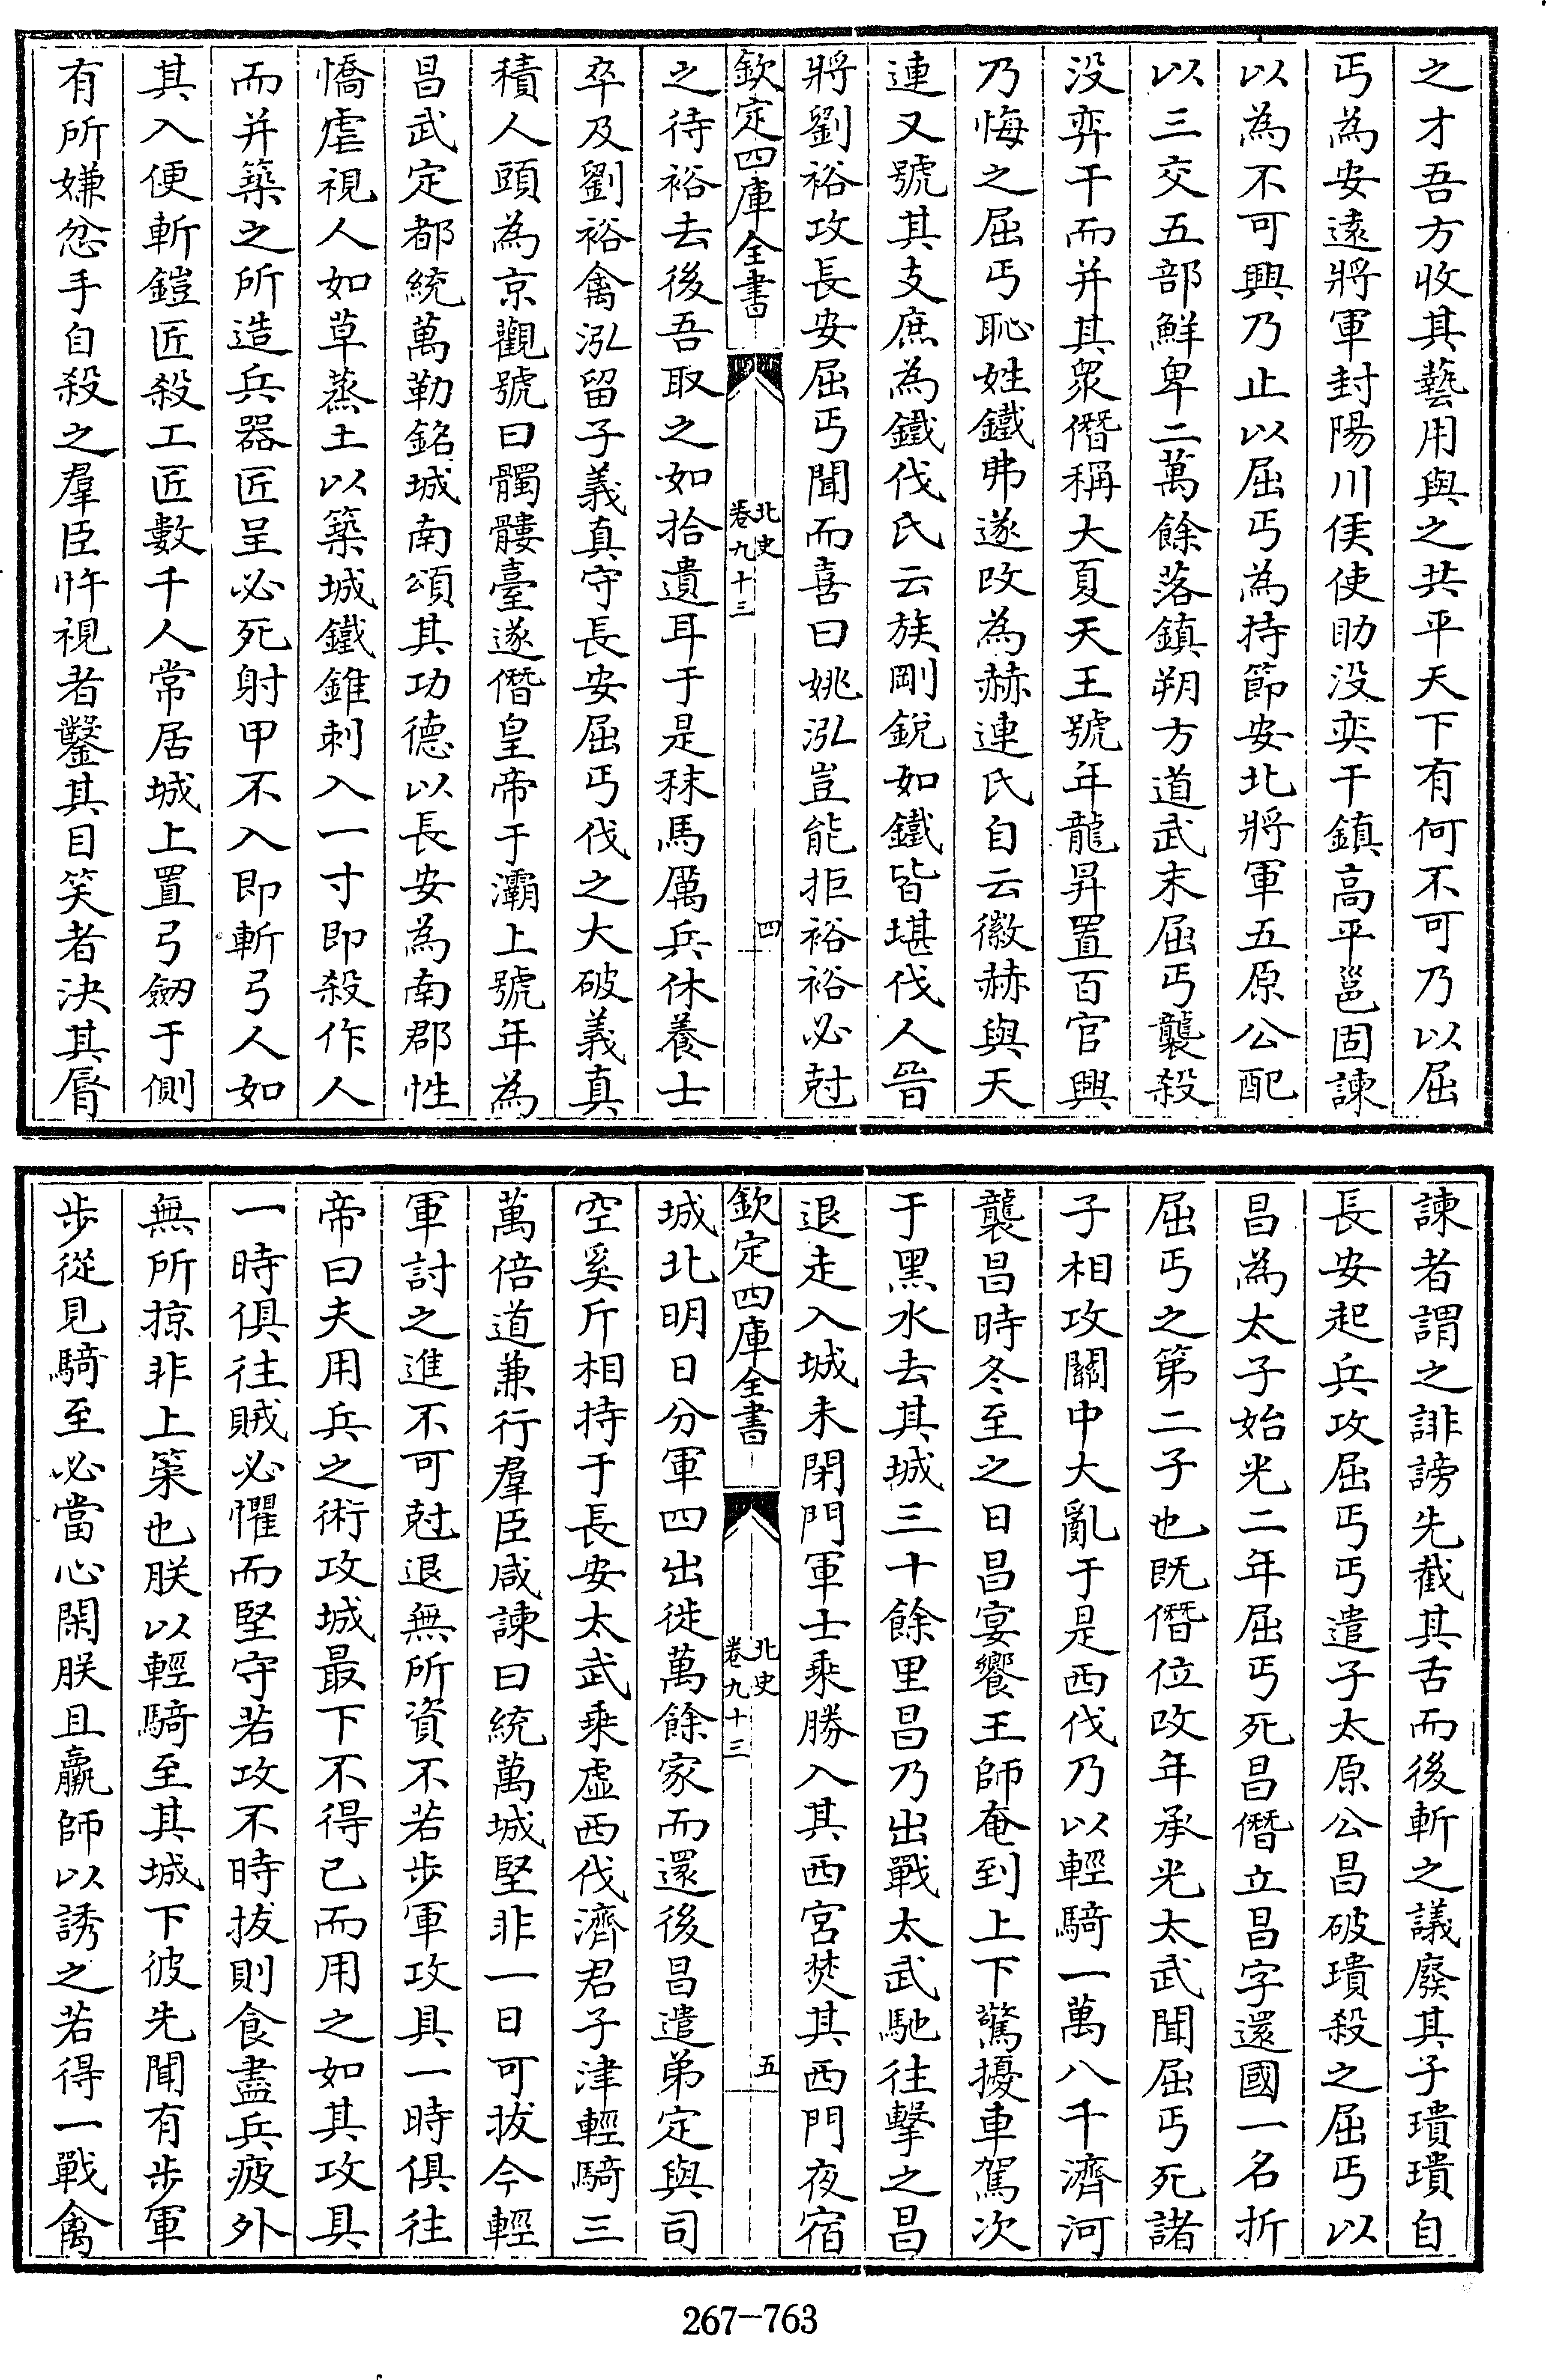 之才吾方收其藝用與之共平天下有何不可乃以屈
丐為安遠將軍封陽川侯使助没奕干鎮高平邕固諫
以為不可興乃止以屈丐為持節安北將軍五原公配
以三交五部鮮卑二萬餘落鎮朔方道武末屈丐襲殺
没弈干而并其衆僭稱大夏天王號年龍昇置百官興
乃悔之屈丐恥姓鐵弗遂改為赫連氏自云徽赫與天
連又號其支庶為鐵伐氏云族剛銳如鐵皆堪伐人晉
將劉裕攻長安屈丐聞而喜曰姚泓豈能拒裕裕必尅
欽定四庫全書
北史
卷九十三
四
之待裕去後吾取之如拾遺耳于是秣馬厲兵休養士
卒及劉裕禽泓留子義真守長安屈丐伐之大破義真
積人頭為京觀號曰髑髏臺遂僭皇帝于灞上號年為
昌武定都統萬勒銘城南頌其功德以長安為南郡性
憍虐視人如草蒸土以築城鐵錐刺入一寸即殺作人
而并築之所造兵器匠呈必死射甲不入即斬弓人如
其入便斬鎧匠殺工匠數千人常居城上置弓劒于側
有所嫌忿手自殺之羣臣忤視者鑿其目笑者決其脣
諫者謂之誹謗先截其舌而後斬之議廢其子璝璝自
長安起兵攻屈丐丐遣子太原公昌破璝殺之屈丐以
昌為太子始光二年屈丐死昌僭立昌字還國一名折
屈丐之第二子也既僭位改年承光太武聞屈丐死諸
子相攻關中大亂于是西伐乃以輕騎一萬八千濟河
襲昌時冬至之日昌宴饗王師奄到上下驚擾車駕次
于黑水去其城三十餘里昌乃出戰太武馳往擊之昌
退走入城未閉門軍士乘勝入其西宮焚其西門夜宿
欽定四庫全書
北史
卷九十三
五
城北明日分軍四出徙萬餘家而還後昌遣弟定與司
空奚斤相持于長安太武乘虛西伐濟君子津輕騎三
萬倍道兼行羣臣咸諫曰統萬城堅非一日可拔今輕
軍討之進不可尅退無所資不若步軍攻具一時俱往
帝曰夫用兵之術攻城最下不得已而用之如其攻具
一時俱往賊必懼而堅守若攻不時拔則食盡兵疲外
無所掠非上策也朕以輕騎至其城下彼先聞有步軍
步從見騎至必當心閑朕且羸師以誘之若得一戰禽
267-763